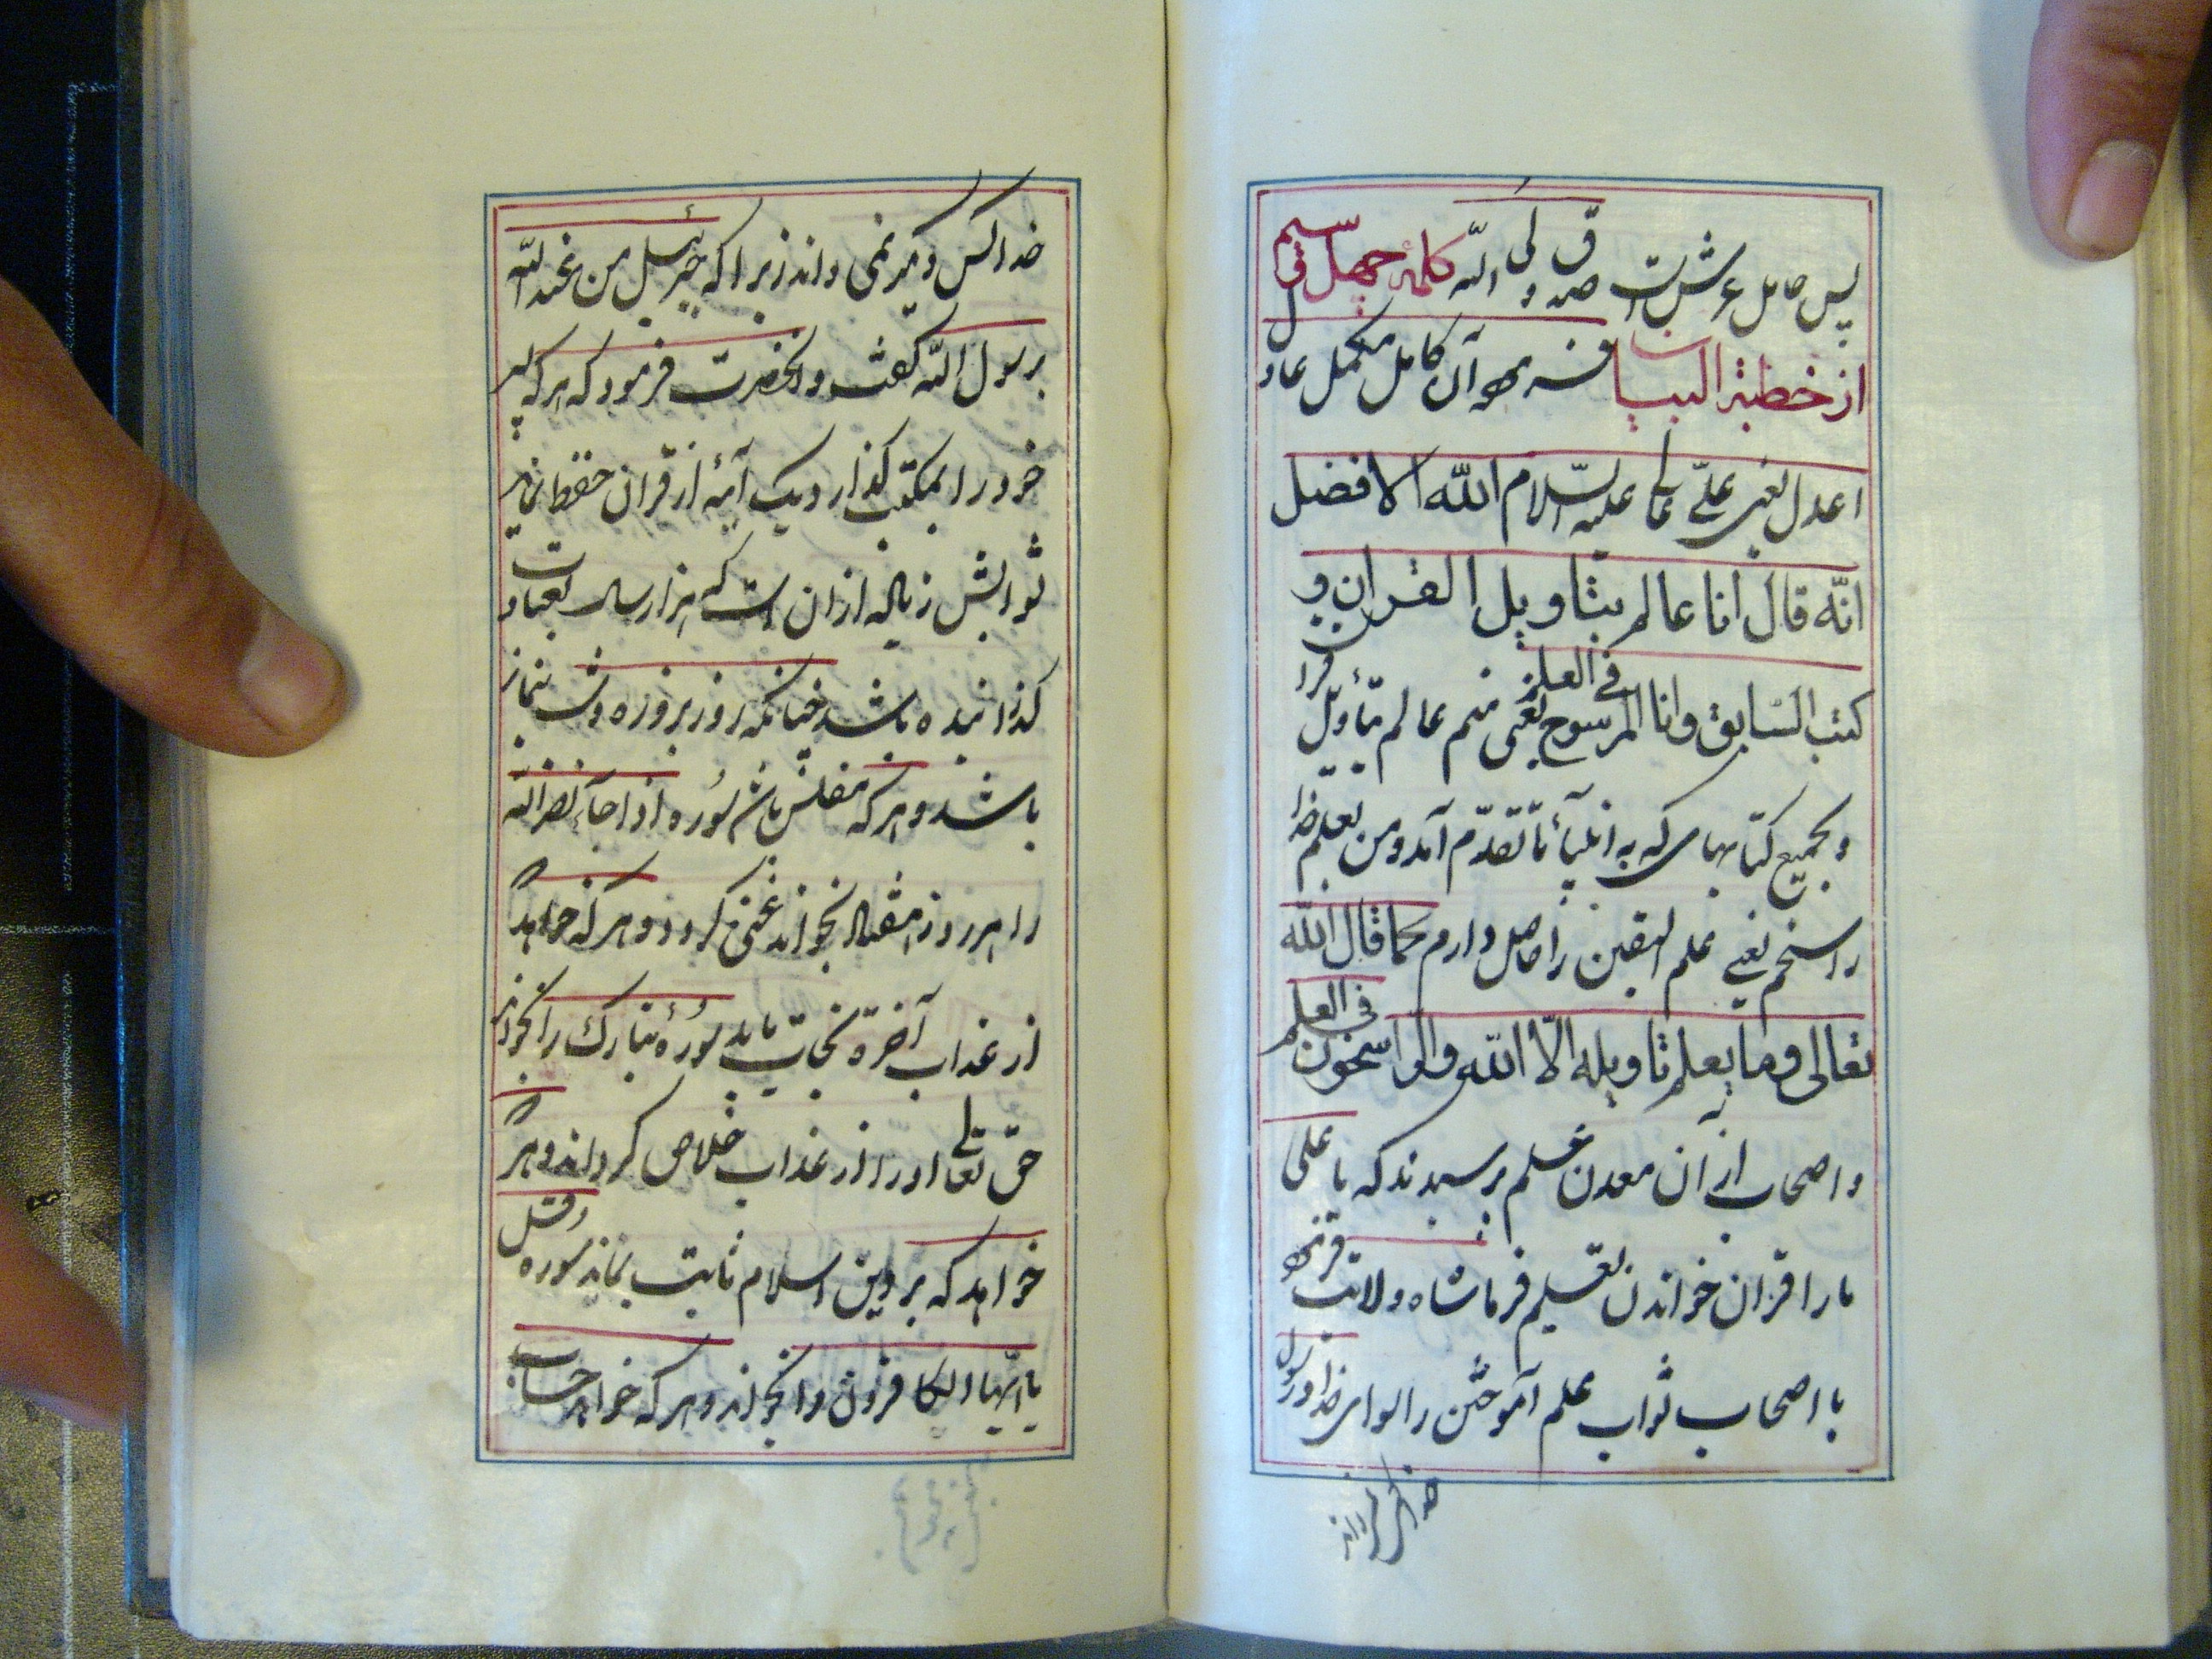 پس حامل عرش است صدق ولی الله کلمۀ چهل سیم فی
از خطبة البیان آن کامل مکمل
اعدل یعنی علی عالی علیه السلام الله الافضل
انّه قال انا عالم بتاویل القران و
کتب السّابق وانا المرسوخ فی العلم یعنی منم عالم بتأویل قران
و بجمیع کتابهای که به انبیآء ما تقدّم آمد و من بعلم خدا
راسخم یعنی علم الیقین را حاصل دارم کما قال الله
تعالی وما یعلم تاویله الّا الله والرّاسخون فی العلم
و اصحاب از آن معدن علم پرسیدند که یا علی
ما را قران خواندن تعلیم فرما شاه ولایت فرمود
یا اصحاب ثواب علم آموختن را سوای خدا و رسول
خدا کس دیگر نمی داند زیرا که جبرئیل من عند الله
برسول الله گفت و آنحضرت فرمود که هر که پسر
خود را بمکتب گذارد و یک آیۀ از قران حفظ نماید
ثوابش زیاده از آن است که هزار سال بعبادت
گذرانیده باشد چنانکه روز بروزه و شب بنماز
باشد و هر که مفلس باشد سوره اذا جآء نصر الله
را هر روز بخواند غنی گردد و هر که خواهد
از عذاب آخرة نجات یابد سورۀ تبارک را بخواند
حق تعالی او را از عذاب خلاص گرداند و هر که
خواهد که بر دین اسلام ثابت بماند سوره قل
یا ایّها الکافرون را بخواند و هر که خواهد حساب